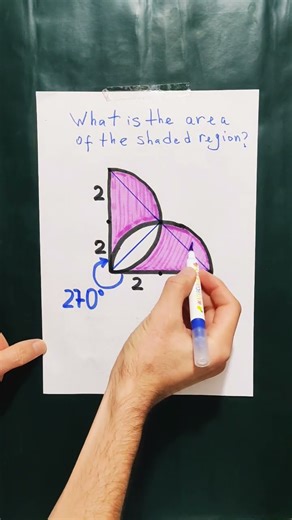 What is the area
of the shaded region?
2
2
270°
2